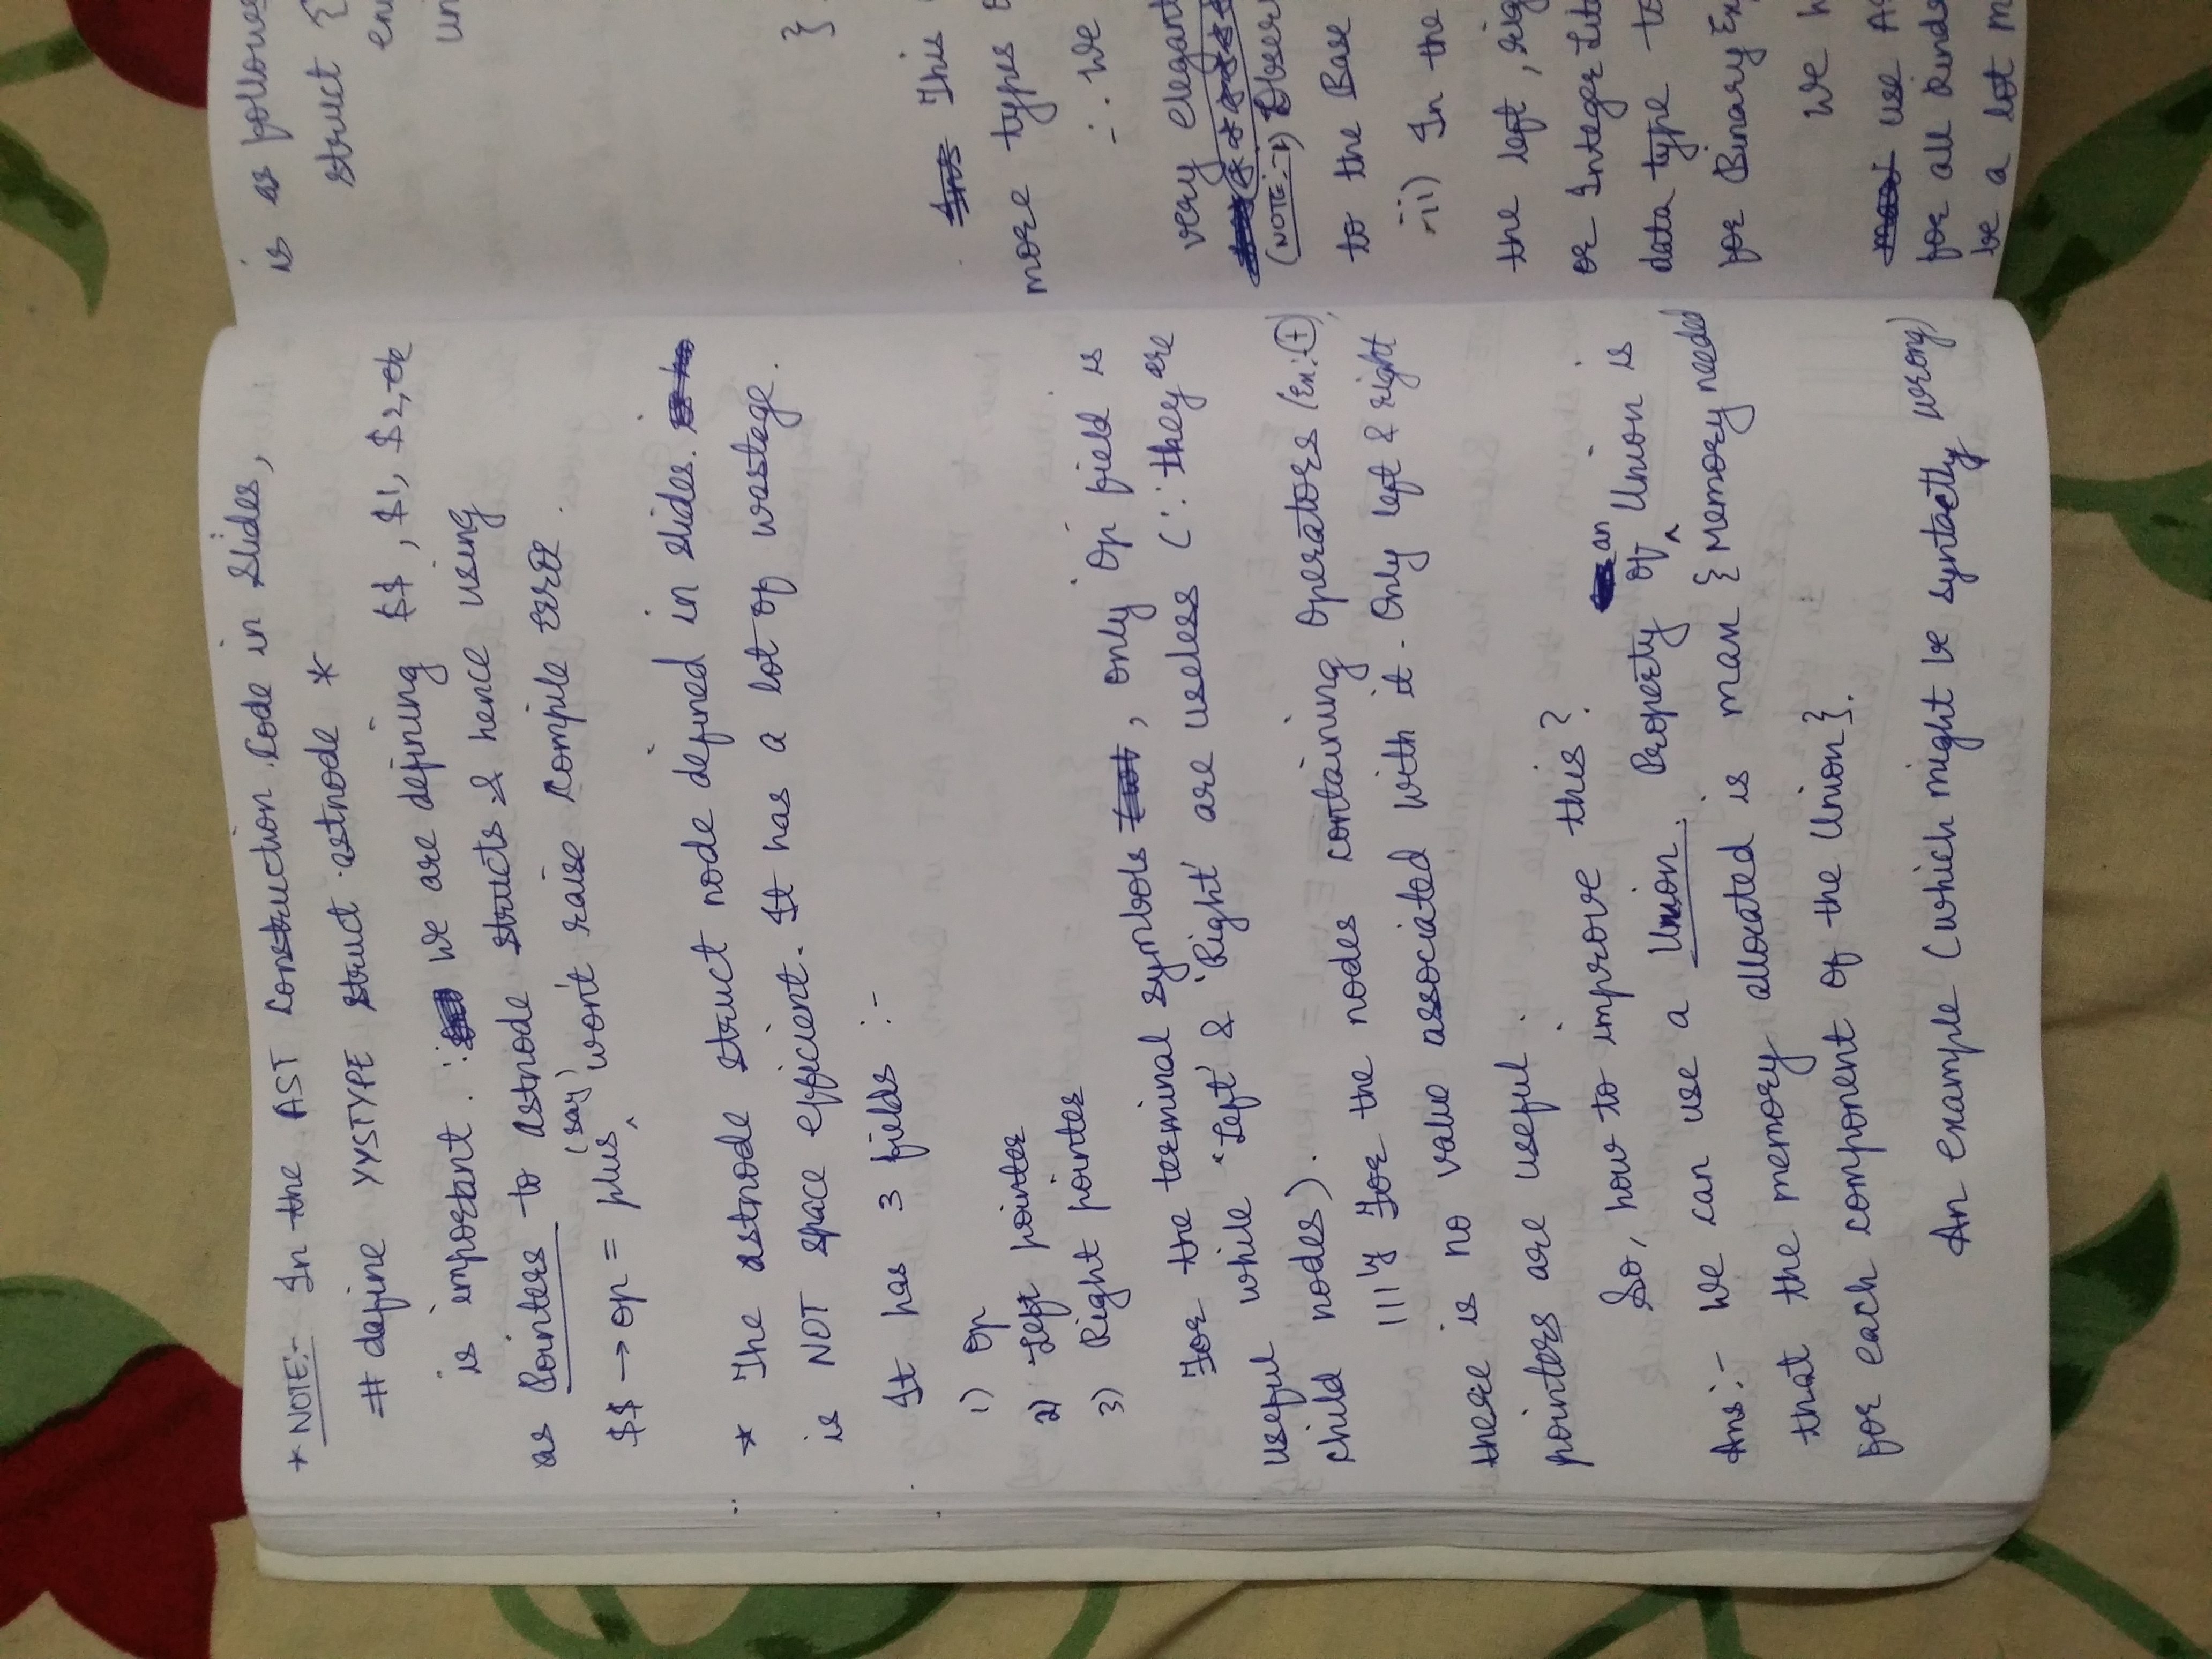 * NOTE:- In the AST Construction Code in Slides,
# define YYSTYPE struct astnode *
is important. ∵ We are defining $$, $1, $2, etc
as Pointers to astnode structs & hence using
$$ → op = plus (say) won't raise Compile Error.
* The astnode struct node defined in slides.
is NOT space efficient. It has a lot of wastage.
It has 3 fields :-
1) Op
2) Left pointer
3) Right pointer
For the terminal symbols, only 'Op' field is
useful while 'Left' & 'Right' are useless (∵ they are
child nodes).
|||ly For the nodes containing Operators (Ex:- +),
there is no value associated with it. Only left & right
pointers are useful.
So, how to improve this?
Ans:- We can use a Union. Property of an Union is
that the memory allocated is max {Memory needed
for each component of the Union}.
An example (which might be syntactly wrong)
is as follows
struct {
}
This
more types
∴ We
very elegant
(NOTE:-i) Obser
to the Base
ii) In the
the left, rig
or Integer Lit
data type to
for Binary Ex
We h
use AS
for all kinds
be a lot m